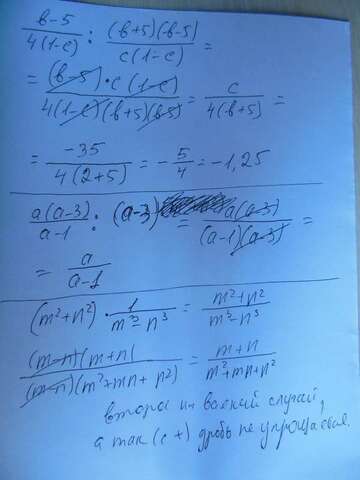 в-5 / 4(1-c) : (в+5)(в-5) / c(1-c) =
= (в-5)·c(1-c) / 4(1-c)(в+5)(в-5) = c / 4(в+5) =
= -35 / 4(2+5) = -5/4 = -1,25
a(a-3) / a-1 : (a-3) = a(a-3) / (a-1)(a-3) =
= a / a-1
(m²+n²) · 1 / m³-n³ = m²+n² / m³-n³
(m-n)(m+n) / (m-n)(m²+mn+n²) = m+n / m²+mn+n²
на всякий случай,
а так (с +) дробь не упрощаемая.